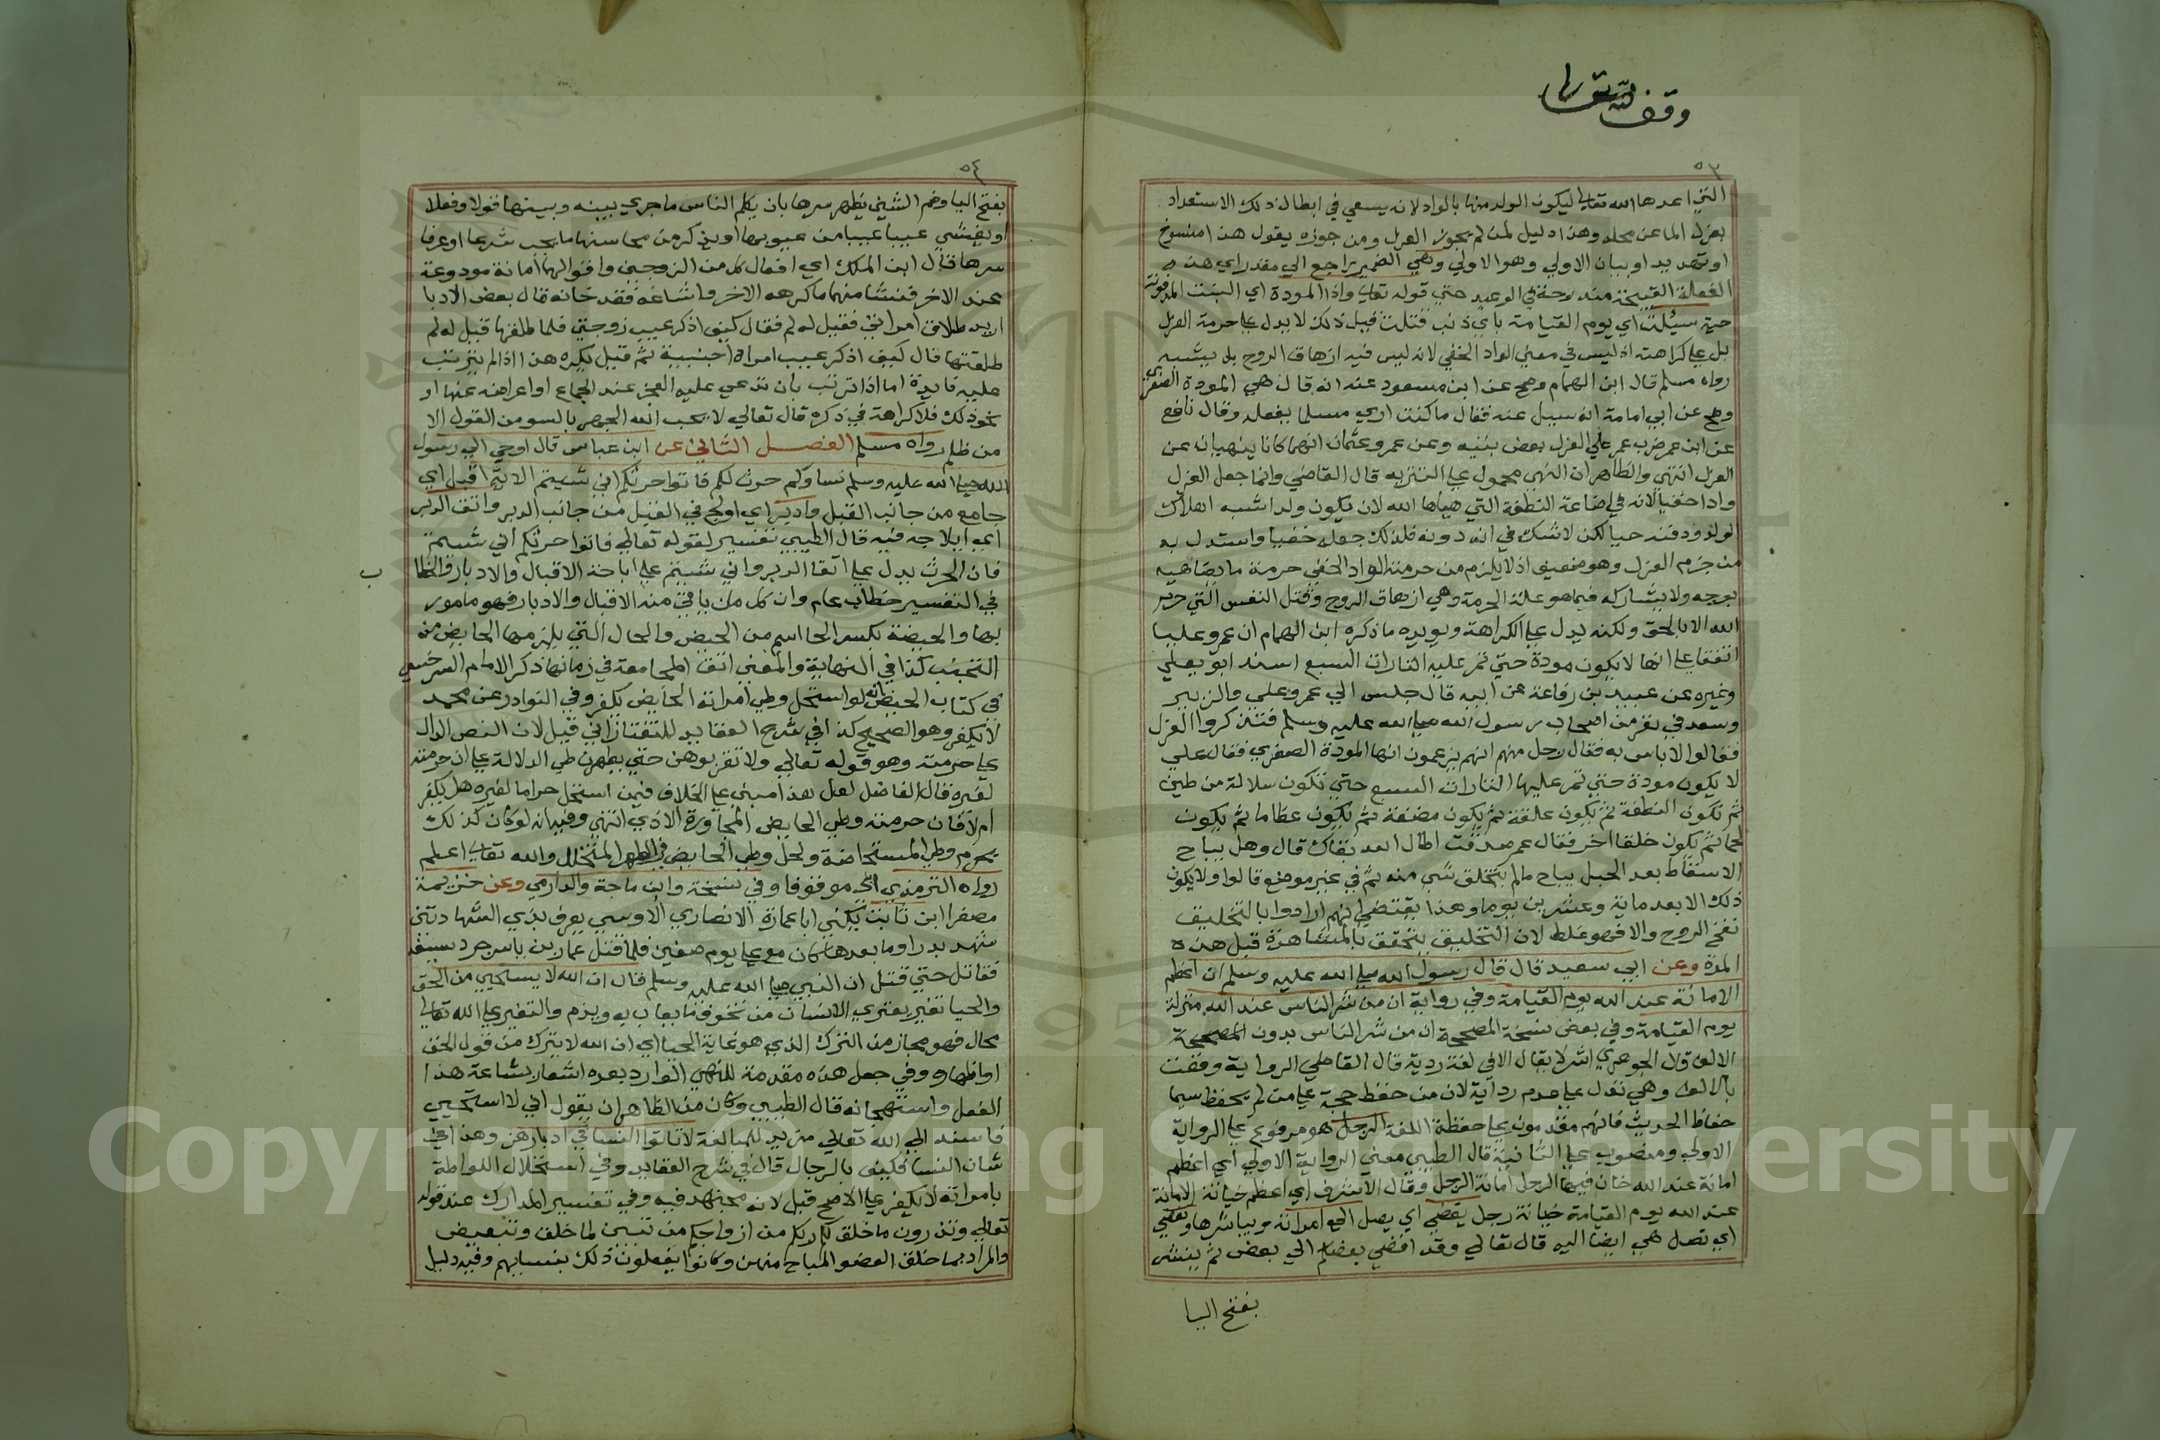 وقف لله تعالى
٥٣
التي اعدها الله تعالى ليكون الولد منها بالواد لانه يسعي في ابطال ذلك الاستعداد
بعزل الماعن محله وهذا دليل لمن لم يجوز العزل ومن جوزه يقول هذا منسوخ
او تهديد او بيان الاولي وهو الاولي وهي الضمير راجع الي مقدر اي هذه
الفعلة القبيحة مندرجة في الوعيد حتي قوله تعالى واذا المودة اي البنت المدفونة
حية سيلت اي يوم القيامة باي ذنب قتلت قيل ذلك لا يدل علي حرمة العزل
بل علي كراهته اذ ليس في معني الواد الخفي لانه ليس فيه ازهاق الروح بل يشبه
رواه مسلم قال ابن الهمام وصح عن ابن مسعود عنه انه قال هي المودة الصغري
وصح عن ابي امامة انه سيل عنه فقال ما كنت اري مسلما يفعله وقال نافع
عن ابن عمر ضرب عمر علي العزل بعض بنيه وعن عمر وعثمان انهما كانا ينهيان عن
العزل انتهي والظاهر ان النهي محمول علي التنزيه قال القاضي وانما جعل العزل
وادا خفيا لانه في اضاعة النطفة التي هياها الله لان يكون ولدا شبه اهلاك
الولد ودفنه حيا لكن لا شك في انه دونه فلذلك جعله خفيا واستدل به
من حرم العزل وهو ضعيف اذ لا يلزم من حرمة الواد الخفي حرمة ما يضاهيه
بوجه ولا يشاركه فيما هو علة الحرمة وهي ازهاق الروح وقتل النفس التي حرم
الله الا بالحق ولكنه يدل علي الكراهة ويويده ما ذكره ابن الهمام ان عمر وعليا
اتفقا علي انها لا يكون مودة حتي تمر عليه التارات السبع اسند ابو يعلي
وغيره عن عبيد بن رفاعة عن ابيه قال جلس الي عمر وعلي والزبير
وسعد في نفر من اصحاب رسول الله صلى الله عليه وسلم فتذكروا العزل
فقالوا لا باس به فقال رجل منهم انهم يزعمون انها المودة الصغري فقال علي
لا يكون مودة حتي تمر عليها التارات السبع حتي تكون سلالة من طين
ثم تكون النطفة ثم يكون علقة ثم يكون مضغة ثم يكون عظاما ثم يكون
لحما ثم يكون خلقا آخر فقال عمر صدقت اطال الله بقاك قال وهل يباح
الاسقاط بعد الحبل يباح مالم يتخلق شي منه ثم في غير موضع قالوا ولا يكون
ذلك الا بعد ماية وعشرين يوما وهذا يقتضي انهم ارادوا بالتخليق
نفخ الروح والا فهو غلط لان التخليق يتحقق بالمشاهدة قبل هذه
المدة وعن ابي سعيد قال قال رسول الله صلى الله عليه وسلم ان اعظم
الامانة عند الله يوم القيامة وفي رواية ان من شر الناس عند الله منزلة
يوم القيامة وفي بعض نسخة المصححة ان من شر الناس بدون المصححة
الالف قال الجوهري اشر لا يقال الا في لغة ردية قال القاضي الرواية وقعت
بالالف وهي تدل علي عدم رداية لان من حفظ حجة علي من لم يحفظ سيما
حفاظ الحديث فانهم مقدمون علي حفظة اللغة الرجل هو مرفوع علي الرواية
الاولي ومنصوب علي الثانية قال الطيبي معني الرواية الاولي اي اعظم
امانة عند الله خان فيها الرجل امانة الرجل وقال الاشرف اي اعظم خيانة الامانة
عند الله يوم القيامة خيانة رجل يفضي اي يصل الي امراته ويباشرها وتفضي
اي تصل هي ايضا اليه قال تعالي وقد افضي بعضكم الي بعض ثم ينشر
بفتح اليا
٥٤
بفتح اليا وضم الشين يظهر سرها بان يكلم الناس ما جري بينه وبينها قولا وفعلا
او يفشي عيبا من عيوبها او يذكر من محاسنها ما يجب شرعا او عرفا
سرها قال ابن الملك اي افعال كل من الزوجين واقوالهما امانة مودوعة
عند الاخر فمن افشا منهما ما كرهه الاخر واشاعه فقد خانه قال بعض الادبا
اريد طلاق امراتي فقيل له لم فقال كيف اذكر عيب زوجتي فلما طلقها قيل له لم
طلقتها قال كيف اذكر عيب امراة اجنبية ثم قيل يكره هذا اذا لم يترتب
عليه فايدة اما اذا ترتب بان تدعي عليه العجز عند الجماع او اعراضه عنها او
نحو ذلك فلا كراهة في ذكره قال تعالي لا يحب الله الجهر بالسو من القول الا
من ظلم رواه مسلم الفصل الثاني عن ابن عباس قال اوحي الي رسول
الله صلى الله عليه وسلم نساوكم حرث لكم فاتوا حرثكم اني شيتم الاية اقبل اي
جامع من جانب القبل وادبر اي اولج في القبل من جانب الدبر واتق الدبر
اي ايلاجه فيه قال الطيبي تفسير لقوله تعالي فاتوا حرثكم اني شيتم
فان الحرث يدل علي اتقا الدبر واني شيتم علي اباحة الاقبال والادبار والخطا
ب
في التفسير خطاب عام وان كل من ياتي منه الاقبال والادبار فهو مامور
بها والحيضة بكسر الحا اسم من الحيض والحال التي يلزمها الحايض من
التجنب كذا في النهاية والمغني اتق المجامعة في زمانها ذكر الامام السرخسي
في كتاب الحيض انه لو استحل وطي امراته الحايض يكفر وفي النوادر عن محمد
لا يكفر وهو الصحيح كذا في شرح العقايد للتفتازاني قيل لان النص الدال
علي حرمته وهو قوله تعالي ولا تقربوهن حتي يطهرن ظني الدلالة علي ان حرمته
لغيره قال الفاضل لعل هذا مبني علي الخلاف فيمن استحل حراما لغيره هل يكفر
ام لا فان حرمته وطي الحايض المجاورة الاذي انتهي وفيه انه لو كان كذلك
يحرم وطي المستحاضة ولحل وطي الحايض في الطهر المتخلل والله تعالى اعلم
رواه الترمذي اي موقوفا وفي نسخة وابن ماجة والدارمي وعن خزيمة
مصغرا ابن ثابت يكني ابا عمارة الانصاري الاوسي يعرف بذي الشهادتين
شهد بدرا وما بعدها كان مع علي يوم صفين فلما قتل عمار بن ياسر جرد سيفه
فقاتل حتي قتل ان النبي صلى الله عليه وسلم قال ان الله لا يستحيي من الحق
والحيا تغير يعتري الانسان من تخوف ما يعاب به ويذم والتغير علي الله تعالي
محال فهو مجاز من الترك الذي هو غاية الحيا اي ان الله لا يترك من قول الحق
او اظهاره وفي جعل هذه مقدمة للنهي الوارد بعده اشعار بشاعة هذا
الفعل واستهجانه قال الطيبي وكان من الظاهر ان يقول اني لا استحيي
فاسند الي الله تعالي مزيد للمبالغة لا تاتوا النسا في ادبارهن وهذا في
شان النسا فكيف بالرجال قال في شرح العقايد وفي استحلال اللواطة
بامراته لا يكفر علي الاصح قيل لانه مجتهد فيه وفي تفسير المدارك عند قوله
تعالي وتذرون ما خلق لكم ربكم من ازواجكم من تبيين لما خلق وتبعيض
والمراد بما خلق العضو المباح منهن وكانوا يفعلون ذلك بنسايهم وفيه دليل
Copyright © King Saud University